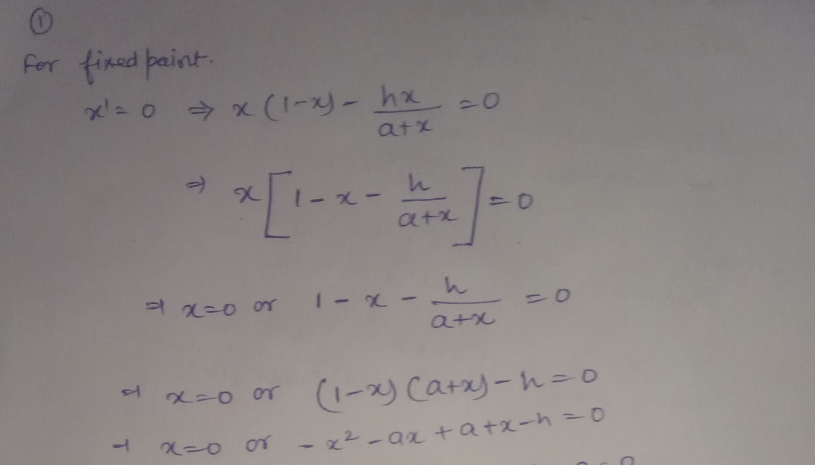 ①
For fixed paint.
x' = 0 ⇒ x(1-x) - hx/(a+x) = 0
⇒ x[1 - x - h/(a+x)] = 0
⇒ x=0 or 1 - x - h/(a+x) = 0
⇒ x=0 or (1-x)(a+x) - h = 0
⇒ x=0 or -x² - ax + a + x - h = 0